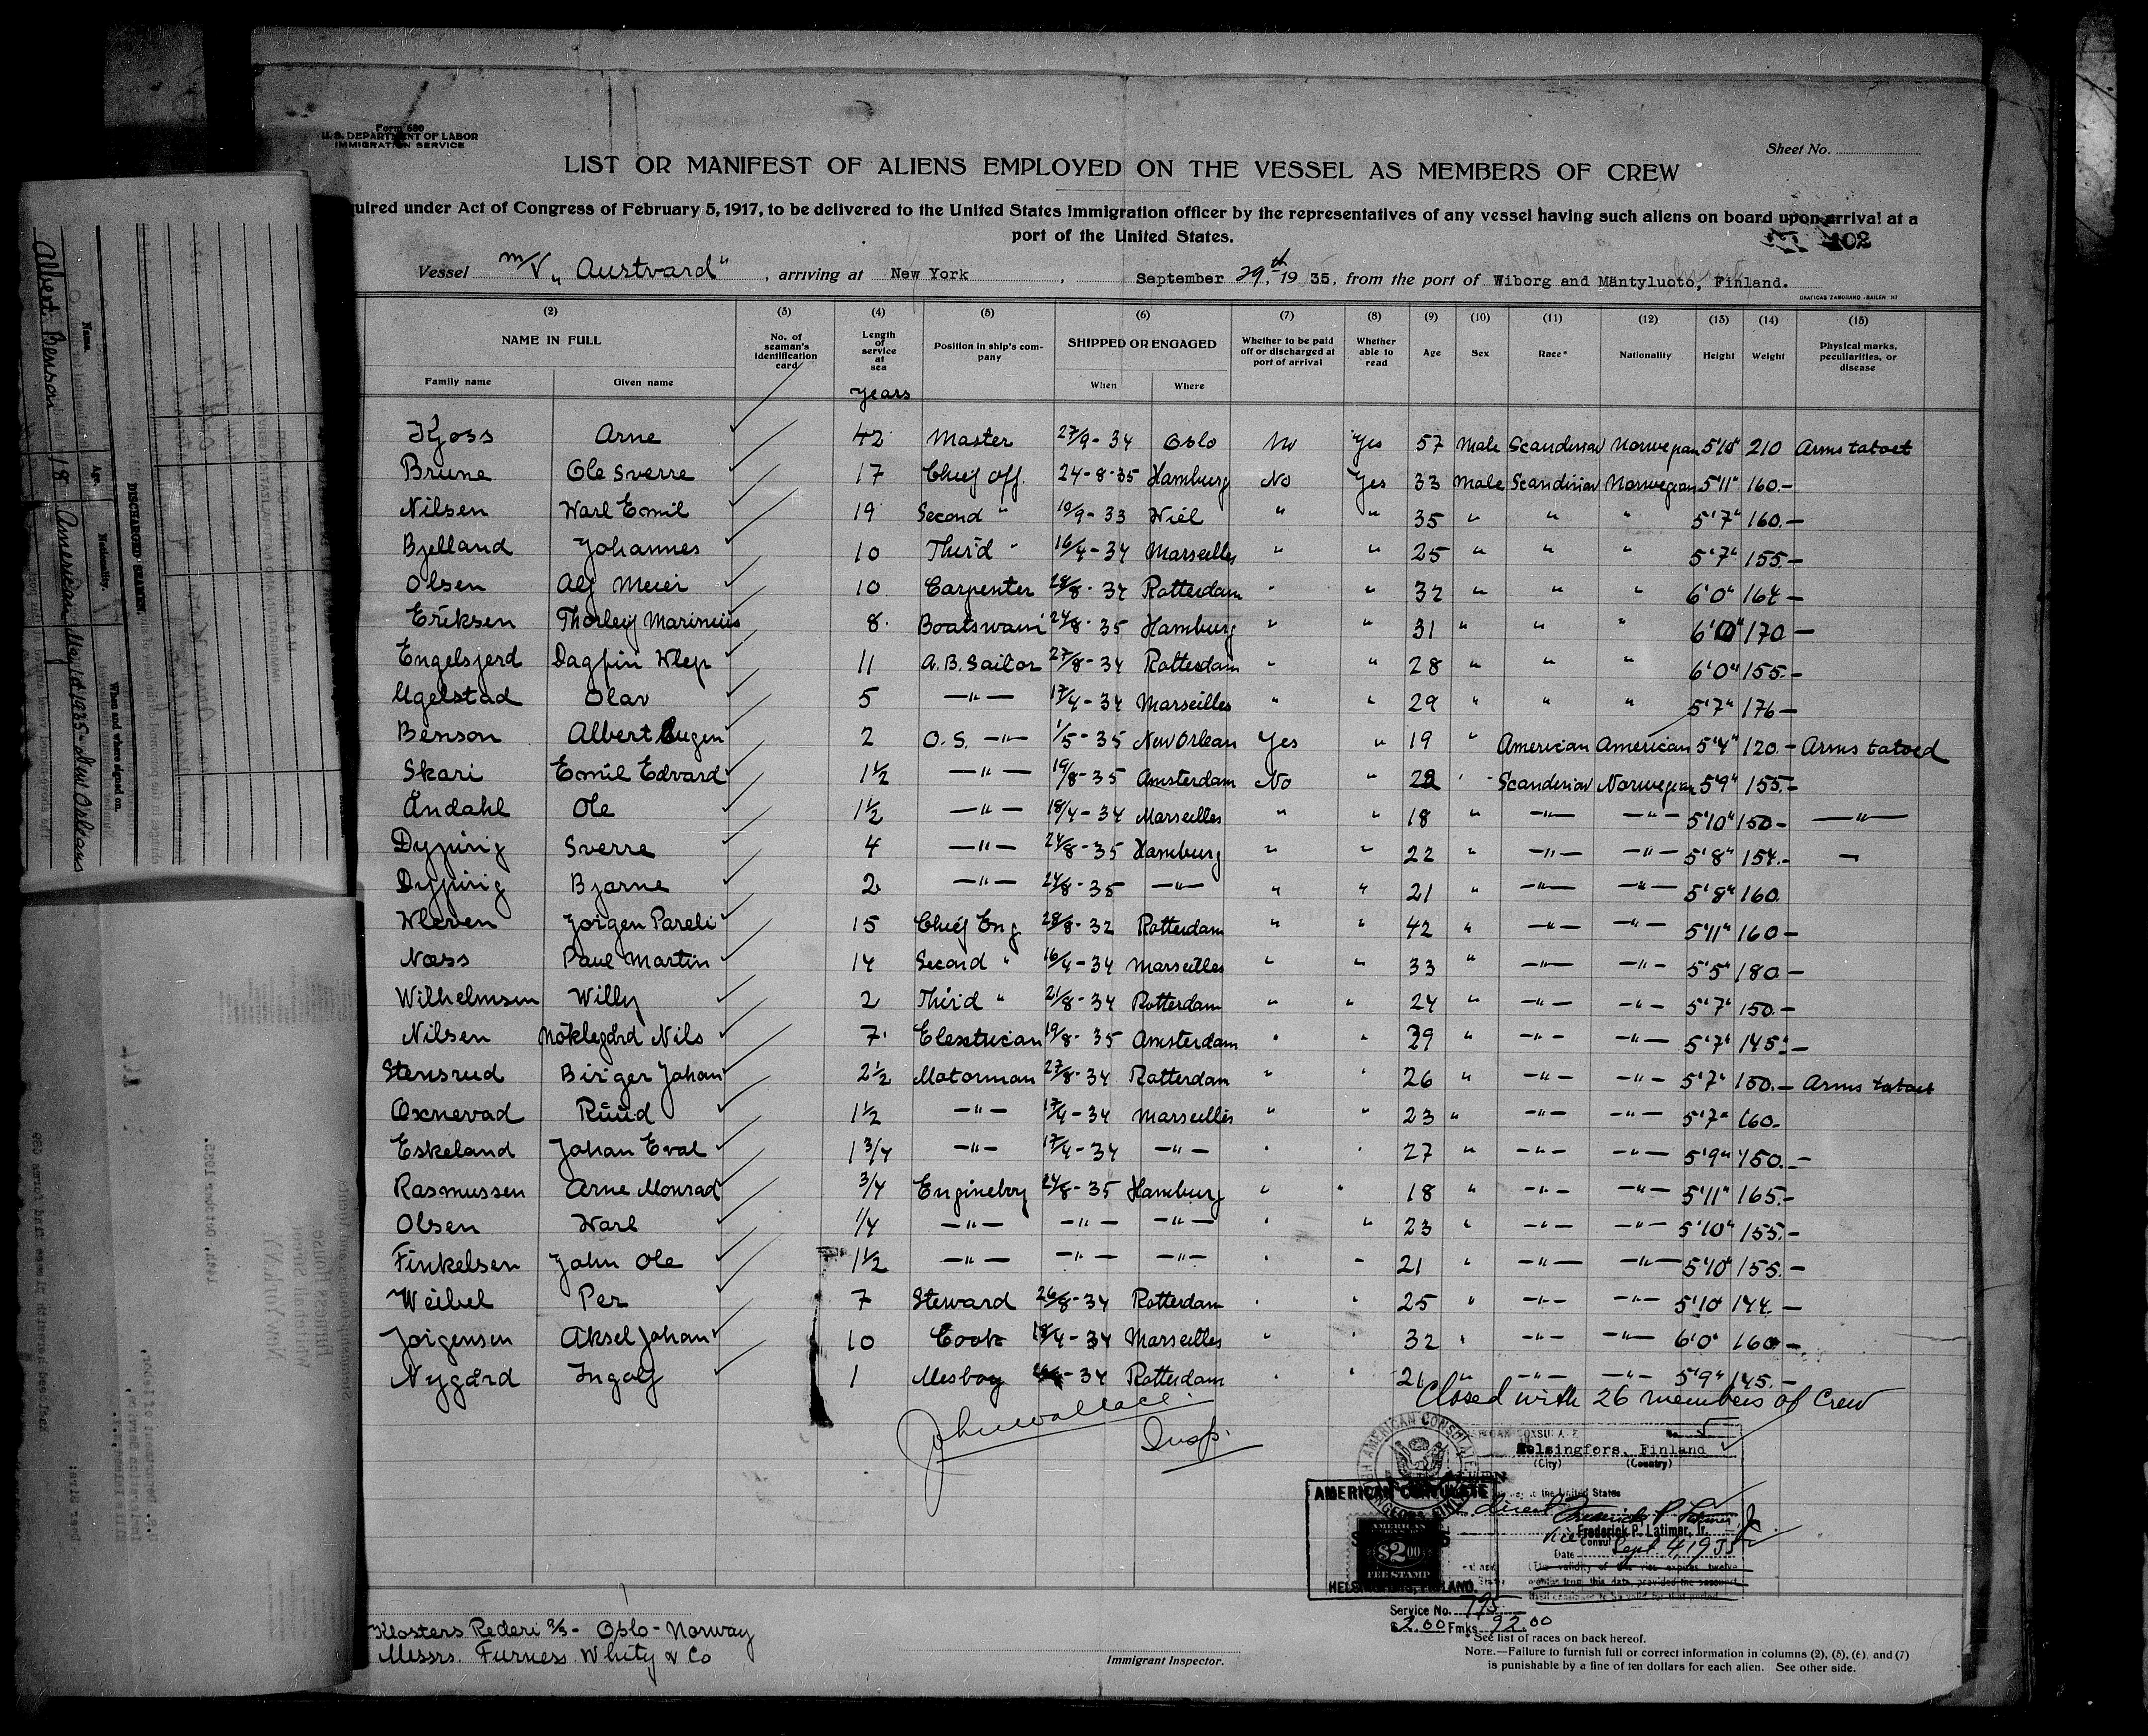 Form 680
U. S. DEPARTMENT OF LABOR
IMMIGRATION SERVICE
Sheet No.
LIST OR MANIFEST OF ALIENS EMPLOYED ON THE VESSEL AS MEMBERS OF CREW
uired under Act of Congress of February 5, 1917, to be delivered to the United States immigration officer by the representatives of any vessel having such aliens on board upon arrival at a
port of the United States.
102
Vessel M/V „Austvard", arriving at New York, September 29th, 1935, from the port of Wiborg and Mäntyluoto, Finland.
(2) (3) (4) (5) (6) (7) (8) (9) (10) (11) (12) (13) (14) (15)
NAME IN FULL No. of seaman's identification card Length of service at sea Position in ship's company SHIPPED OR ENGAGED Whether to be paid off or discharged at port of arrival Whether able to read Age Sex Race* Nationality Height Weight Physical marks, peculiarities, or disease
Family name Given name When Where
years
Kjoss Arne 42 Master 27/9-34 Oslo No Yes 57 Male Scandinav Norwegian 5'10" 210 Arms tatoet
Brune Ole Sverre 17 Chief Off. 24-8-35 Hamburg No Yes 33 Male Scandinav Norwegian 5'11" 160.-
Nilsen Karl Emil 19 Second " 10/9-33 Kiel " " 35 " " " 5'7" 160.-
Bjelland Johannes 10 Third " 16/4-34 Marseilles " " 25 " " " 5'7" 155.-
Olsen Alf Meier 10 Carpenter 28/8-34 Rotterdam " " 32 " " " 6'0" 164 -
Eriksen Thorleif Marinius 8 Boatswain 24/8-35 Hamburg " " 31 " " " 6'0" 170 -
Engelsjerd Dagfin Klep 11 A.B. Sailor 27/8-34 Rotterdam " " 28 " " " 6'0" 155.-
Ugelstad Olav 5 -"- 17/4-34 Marseilles " " 29 " " " 5'7" 176 -
Benson Albert Eugen 2 O.S. -"- 1/5-35 New Orlean Yes " 19 " American American 5'4" 120.- Arms tatoed
Skari Emil Edvard 1 1/2 -"- 19/8-35 Amsterdam No " 22 " Scandinav Norwegian 5'9" 155.-
Andahl Ole 1 1/2 -"- 18/4-34 Marseilles " " 18 " -"- -"- 5'10" 150- -"-
Dypvig Sverre 4 -"- 24/8-35 Hamburg " " 22 " -"- -"- 5'8" 154.- -
Dypvig Bjarne 2 -"- 24/8-35 -"- " " 21 " -"- -"- 5'8" 160.
Kleven Jorgen Pareli 15 Chief Eng 28/8-32 Rotterdam " " 42 " -"- -"- 5'11" 160 -
Næss Paul Martin 14 Second " 16/4-34 Marseilles " " 33 " -"- -"- 5'5" 180 -
Wilhelmsen Willy 2 Third " 21/8-34 Rotterdam " " 24 " -"- -"- 5'7" 150.-
Nilsen Nöklegård Nils 7 Elextrican 19/8-35 Amsterdam " " 29 " -"- -"- 5'7" 145.-
Stensrud Birger Johan 2 1/2 Motorman 27/8-34 Rotterdam " " 26 " -"- -"- 5'7" 150.- Arms tatoet
Oxnevad Ruud 1 1/2 -"- 17/4-34 Marseilles " " 23 " -"- -"- 5'7" 160-
Eskeland Johan Eval 1 3/4 -"- 17/4-34 -"- " " 27 " -"- -"- 5'9" 150.-
Rasmussen Arne Monrad 3/4 Engineboy 24/8-35 Hamburg " " 18 " -"- -"- 5'11" 165.-
Olsen Karl 1/4 -"- -"- -"- " " 23 " -"- -"- 5'10" 155.-
Finkelsen John Ole 1 1/2 -"- -"- -"- " " 21 " -"- -"- 5'10" 155.-
Weibel Per 7 Steward 26/8-34 Rotterdam " " 25 " -"- -"- 5'10" 144 -
Jorgensen Aksel Johan 10 Cook 18/4-34 Marseilles " " 32 " -"- -"- 6'0" 160 -
Nygård Ingolf 1 Mesboy -34 Rotterdam " " 21 " -"- -"- 5'9" 145.-
Closed with 26 members of Crew
John Wallace Insp.
Helsingfors, Finland
(City) (Country)
AMERICAN CONSULATE
Frederick P. Latimer, Jr.
Vice Consul
Date Sept 4, 1935
AMERICAN
$2.00
FEE STAMP
HELSINGFORS, FINLAND.
Service No. 795
$2.00 Fmks 92.00
Klosters Rederi A/S - Oslo - Norway
Messrs. Furness. Whity & Co
Immigrant Inspector.
*See list of races on back hereof.
NOTE.—Failure to furnish full or correct information in columns (2), (5), (6) and (7)
is punishable by a fine of ten dollars for each alien. See other side.
Name. Age. Nationality. When and where signed on.
Albert Benson 18 American May 1st 1935 - New Orleans
DISCHARGED SEAMEN.